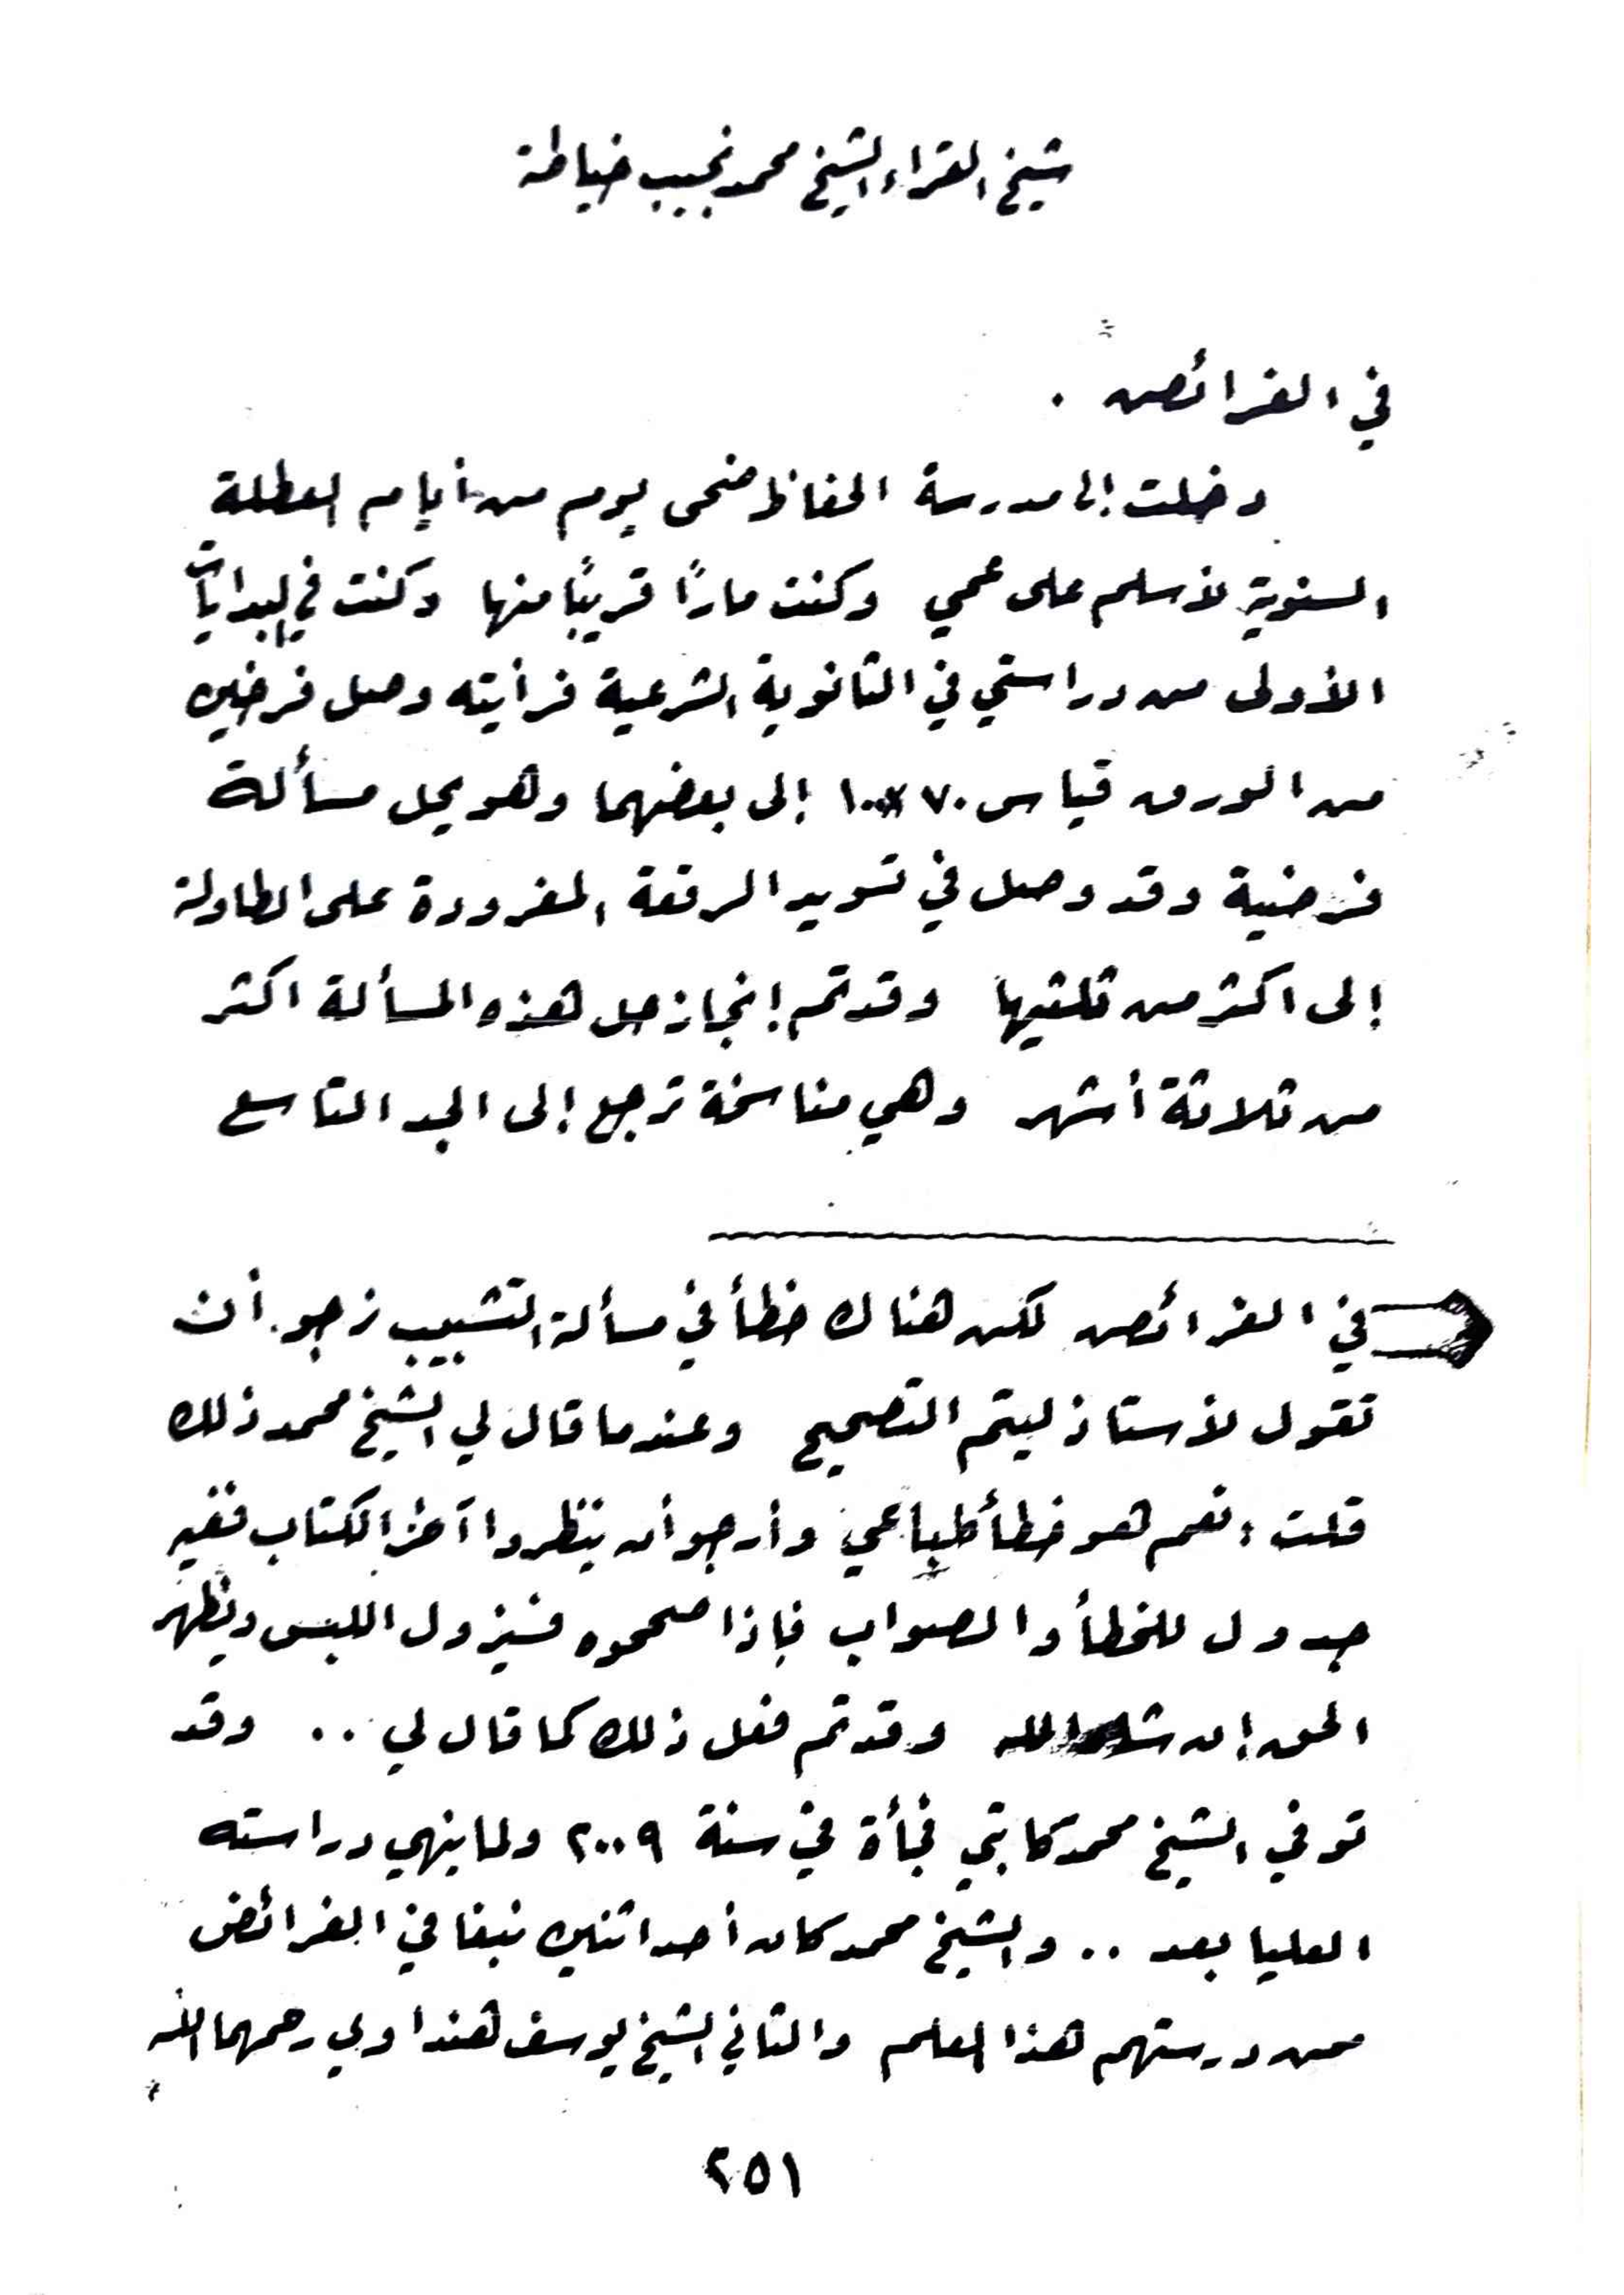 شيخ القراء الشيخ محمد نجيب خياطة
في الفرائض .
دخلت إلى مدرسة الحفاظ ضحى يوم من أيام العطلة
السنوية لأسلم على عمي وكنت مارًا قريبًا منها وكنت في البدايات
الأولى من دراستي في الثانوية الشرعية فرأيته وصل فرخين
من الورق قياس ٧٠×١٠٠ إلى بعضهما وهو يحل مسألة
فرضية وقد وصل في تسويد الرقعة المفرودة على الطاولة
إلى اكثر من ثلثيها وقد تم إنجاز حل هذه المسألة اكثر
من ثلاثة أشهر وهي مناسخة ترجع إلى الجد التاسع
في الفرائض لكن هناك خطأ في مسألة التشبيب نرجو أن
تقول لأستاذ ليتم التصحيح وعندما قال لي الشيخ محمد ذلك
قلت : نعم هو خطأ طباعي وأرجو أن ينظروا آخر الكتاب ففيه
جدول للخطأ والصواب فإذا صححوه فسيزول اللبس ويظهر
الحق إن شاء الله وقد تم فعل ذلك كما قال لي .. وقد
توفي الشيخ محمد كاتبي فجأة في سنة ٢٠٠٩ ولما ينهي دراسته
العليا بعد .. والشيخ محمد كان أحد اثنين نبغا في الفرائض
ممن درستهم هذا العلم والثاني الشيخ يوسف هنداوي رحمهما الله
٢٥١